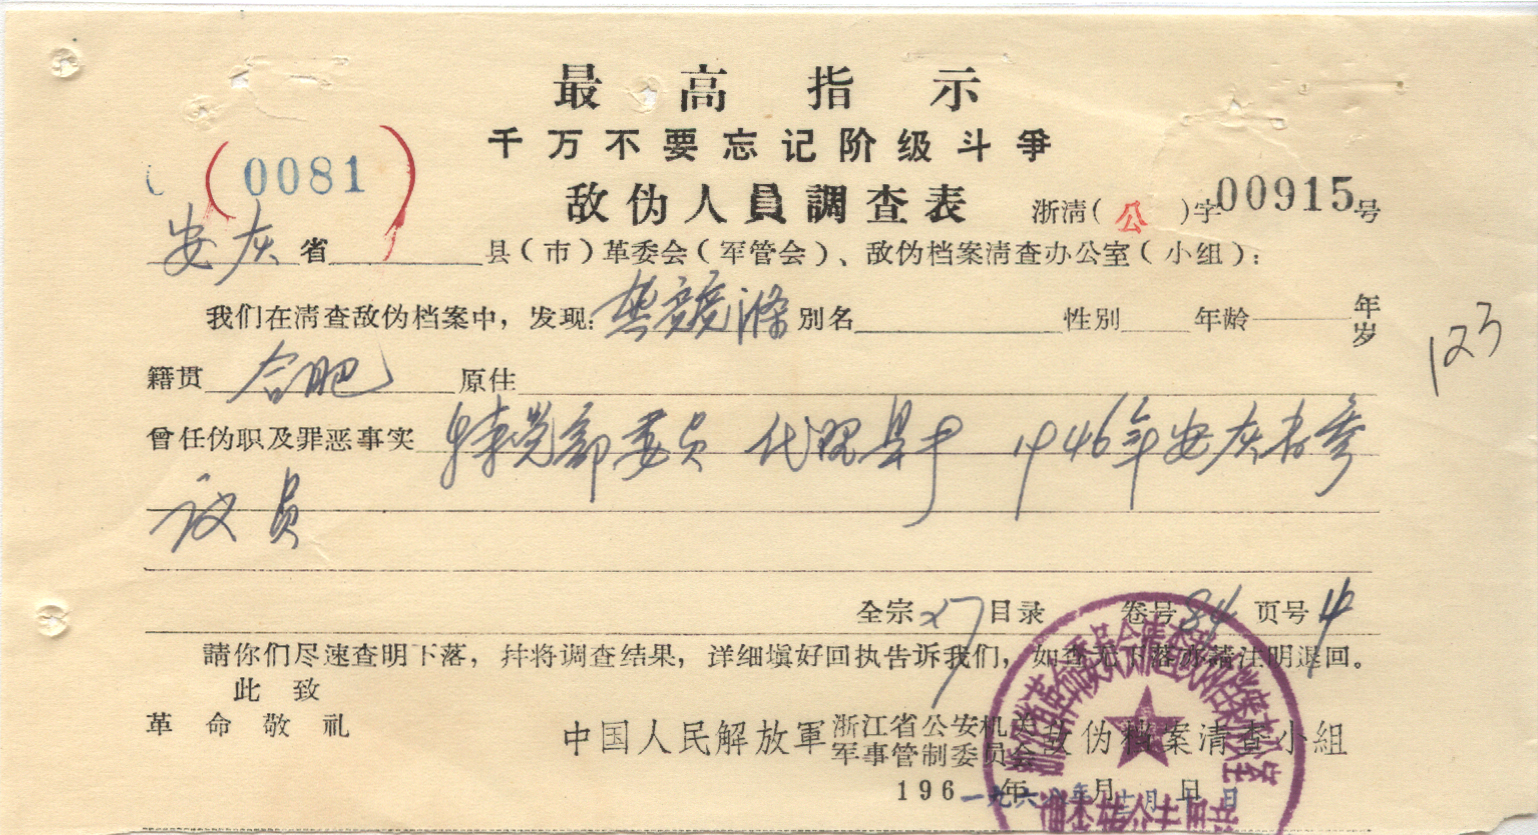 最高指示
千万不要忘记阶级斗爭
(0081)
敌伪人員調查表
浙清(公)字00915号
安灰省 县(市)革委会(军管会)、敌伪档案清查办公室(小组):
我们在清查敌伪档案中，发现: 龚兢滌 别名 性别 年龄 年岁
123
籍贯 合肥 原住
曾任伪职及罪恶事实 特党部委员 代理县尹 1946年安灰省参
议员
全宗 27 目录 卷号 84 页号 4
請你们尽速查明下落，并将调查结果，详细填好回执告诉我们，如查无下落亦請注明退回。
此致
革命敬礼
中国人民解放軍浙江省公安机关军事管制委员会敌伪档案清查小組
196 年 月 日